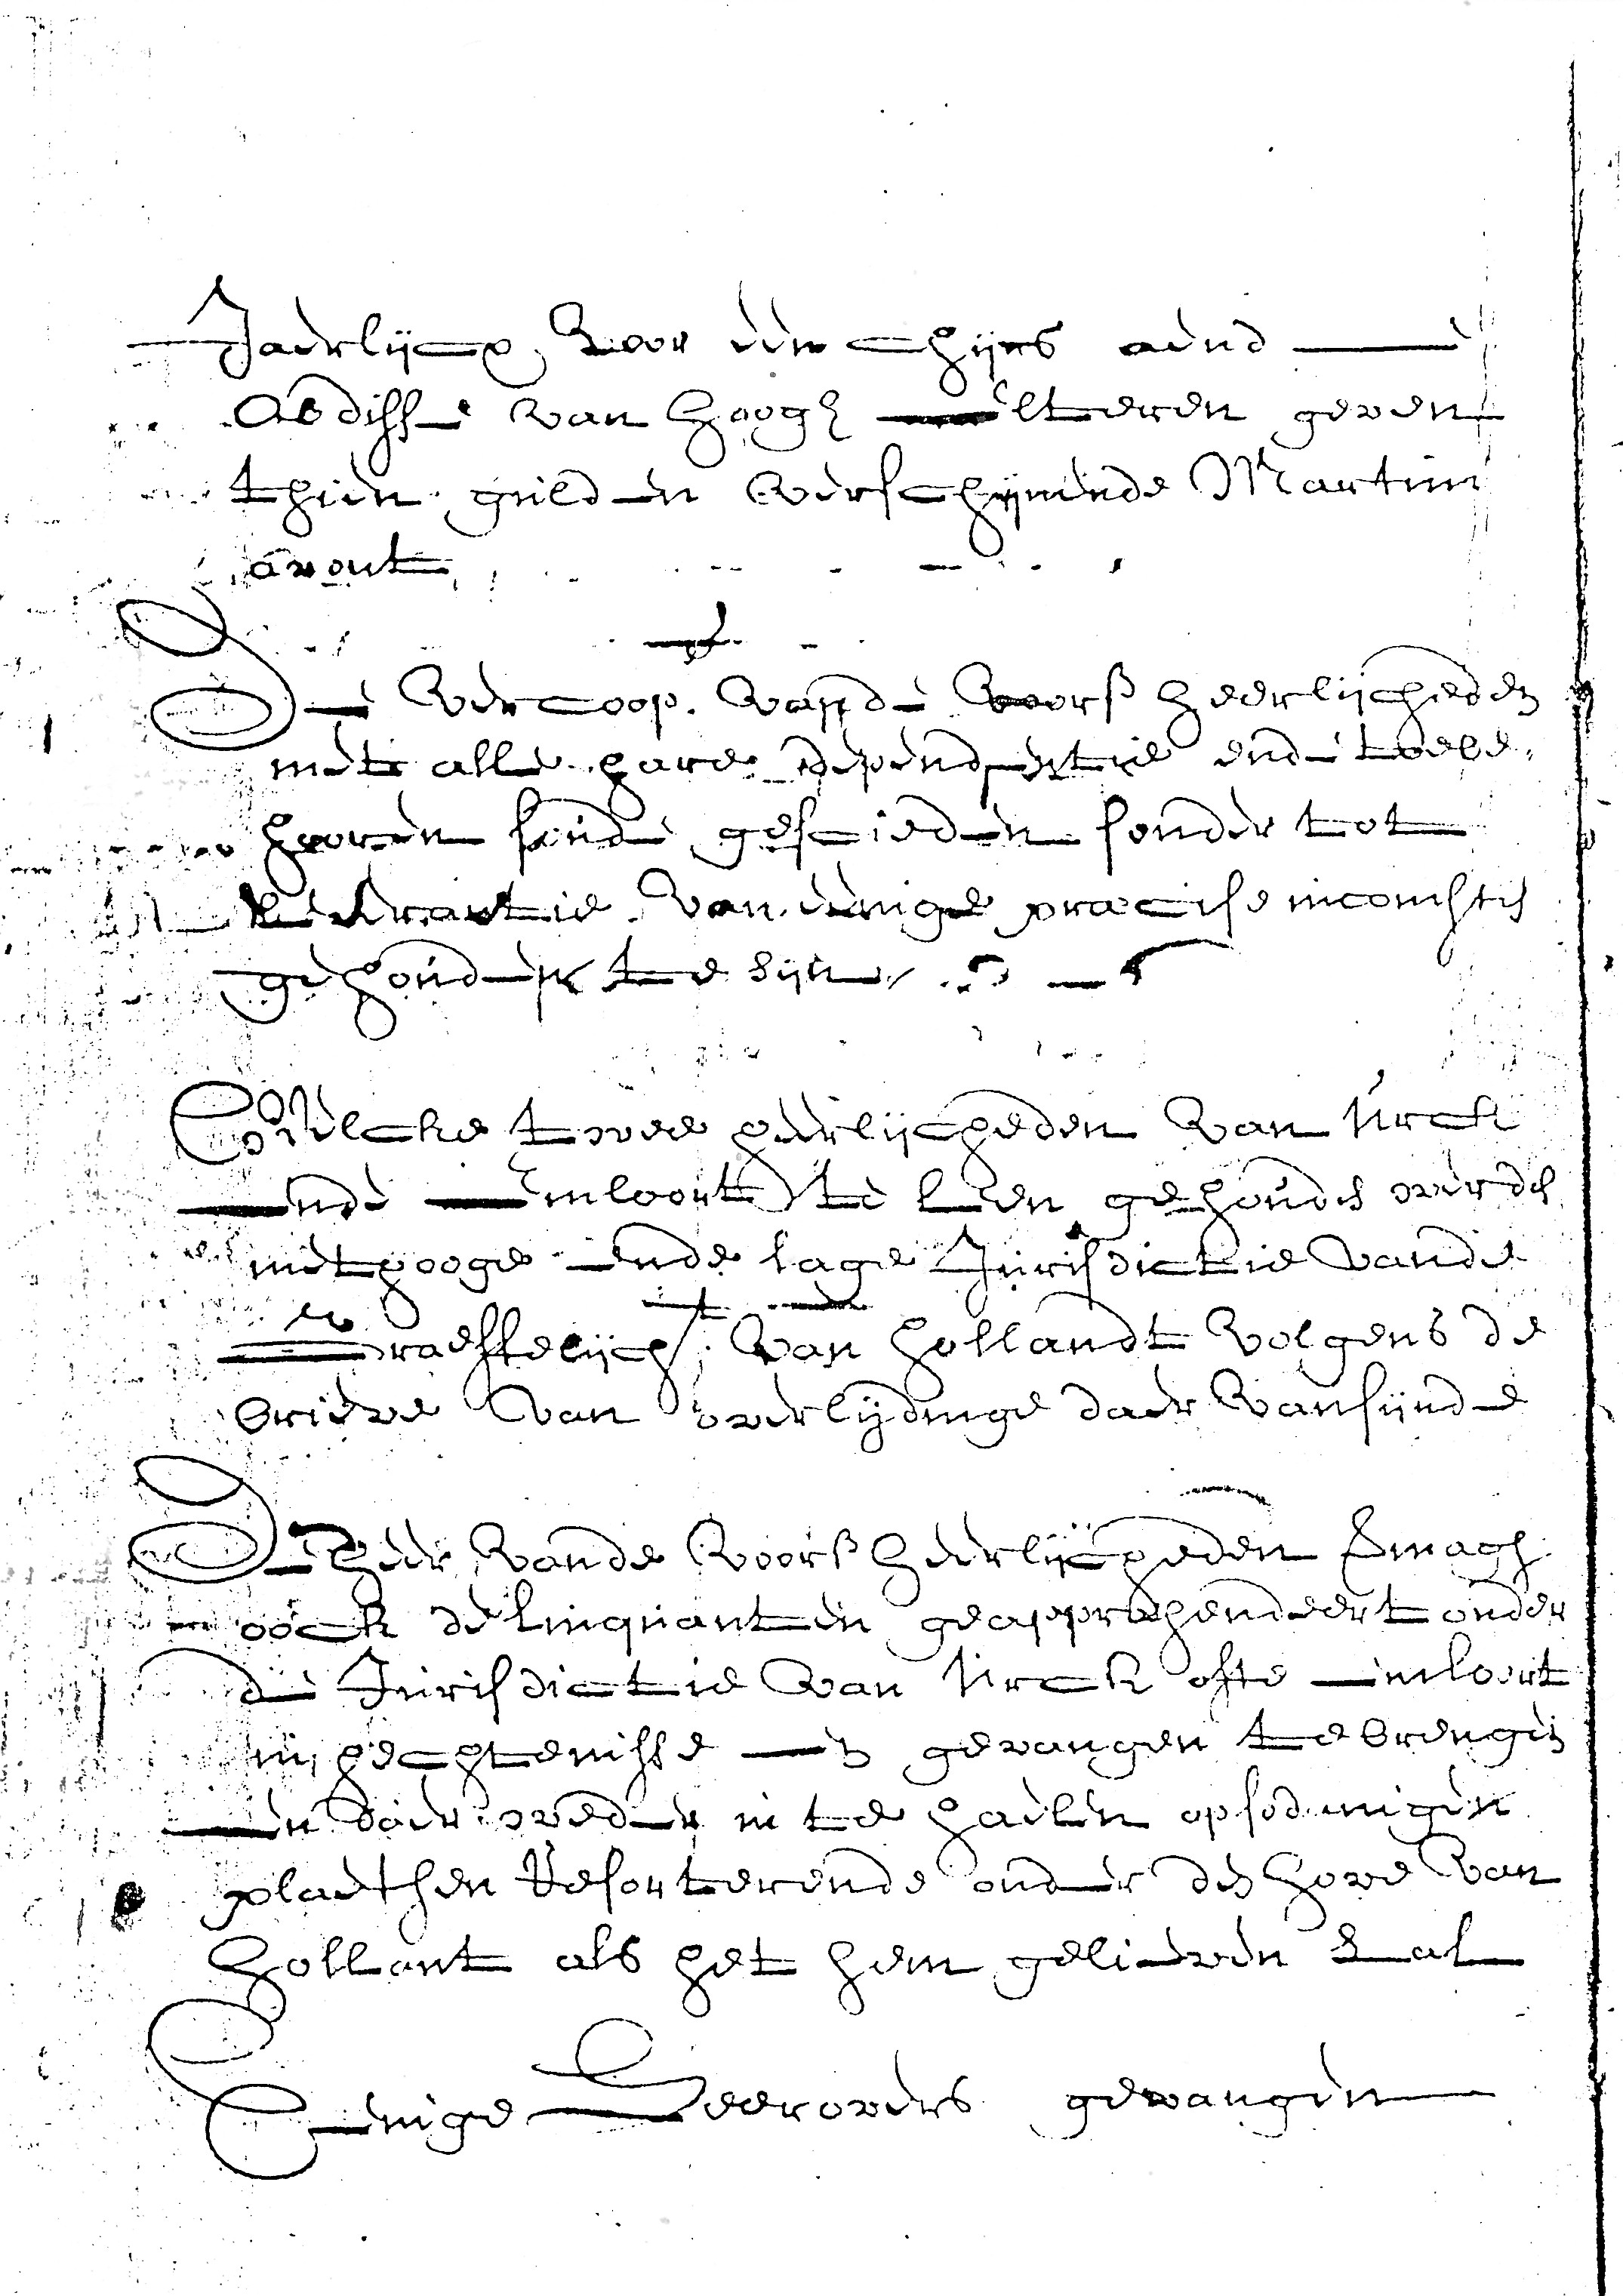 Jaerlijcx, Voor een chijns aende
Abdisse van Hoogh Elteren geven
thien gulden verschijnende Martini
avont
De vercoop vande voorsz heerlijcheden
met alle hare dependentie ende toebe,
hooren sende geschieden sonder tot
van eenige precise incomsten
gehouden te zijn
Welcke twee heerlijcheden van Urck
ende Emloort te Leen gehouden werden
met hooge ende lage Jurisdictie vande
Graeffelijckh. van Hollandt volgens de
brieve van verlijdinge daer van sijnde
De Heer vande voorsz heerlijcheden vermach
oock delinquanten geapprehendeert onder
de Jurisdictie van Urck ofte Emloort
in hechtenisse en gevangen te brengen
en daer weder in te haelen op sodanigen
plaetsen Resorterende onder den Hove van
Hollant als het hem gelieven zal
Eenige Zeerovers gevangen